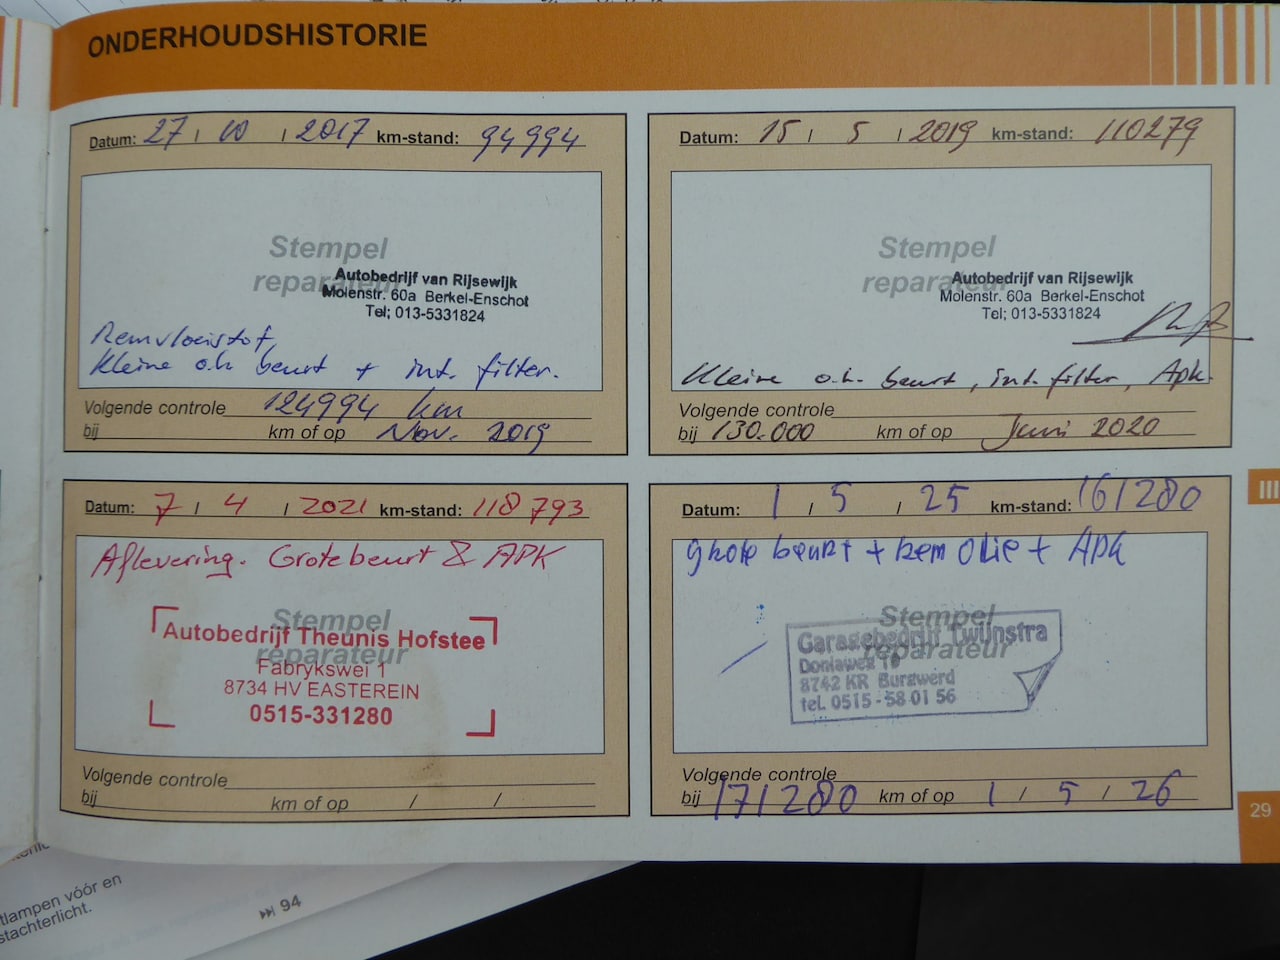 ONDERHOUDSHISTORIE
Datum: 27 / 10 / 2017 km-stand: 94994
Stempel
reparateur
Autobedrijf van Rijsewijk
Molenstr. 60a Berkel-Enschot
Tel; 013-5331824
Remvloeistof,
Kleine o.h. beurt + int. filter.
Volgende controle 124994 km
bij km of op Nov. 2019
Datum: 15 / 5 / 2019 km-stand: 110279
Stempel
reparateur
Autobedrijf van Rijsewijk
Molenstr. 60a Berkel-Enschot
Tel; 013-5331824
Kleine o.h. beurt, int. filter, Apk.
Volgende controle
bij 130.000 km of op Juni 2020
Datum: 7 / 4 / 2021 km-stand: 118793
Aflevering. Grote beurt & APK
Stempel
reparateur
Autobedrijf Theunis Hofstee
Fabrykswei 1
8734 HV EASTEREIN
0515-331280
Volgende controle
bij km of op / /
Datum: 1 / 5 / 25 km-stand: 161280
grote beurt + Rem olie + APK
Stempel
reparateur
Garagebedrijf Twijnstra
Doniaweg
8742 KR Burgwerd
tel. 0515-58 01 56
Volgende controle
bij 171280 km of op 1 / 5 / 26
III
29
tlampen vóór en
stachterlicht.
94